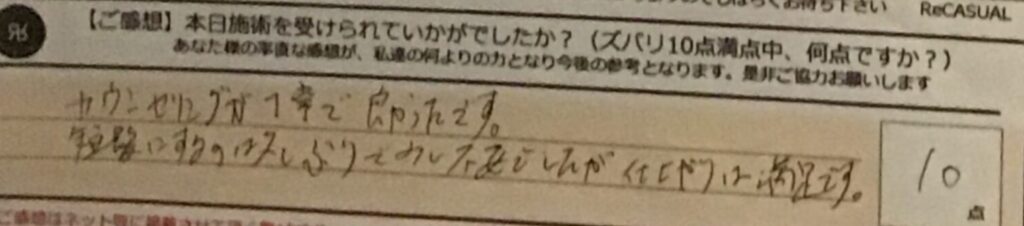 お待ち下さい ReCASUAL
【ご感想】本日施術を受けられていかがでしたか？（ズバリ10点満点中、何点ですか？）
あなた様の率直な感想が、私達の何よりの力となり今後の参考となります。是非ご協力お願いします
カウンセリングが丁寧で良かったです。
短髪にするのは久しぶりで少し不安でしたが仕上がりは満足です。
10
点
ご感想はネット等に掲載させて